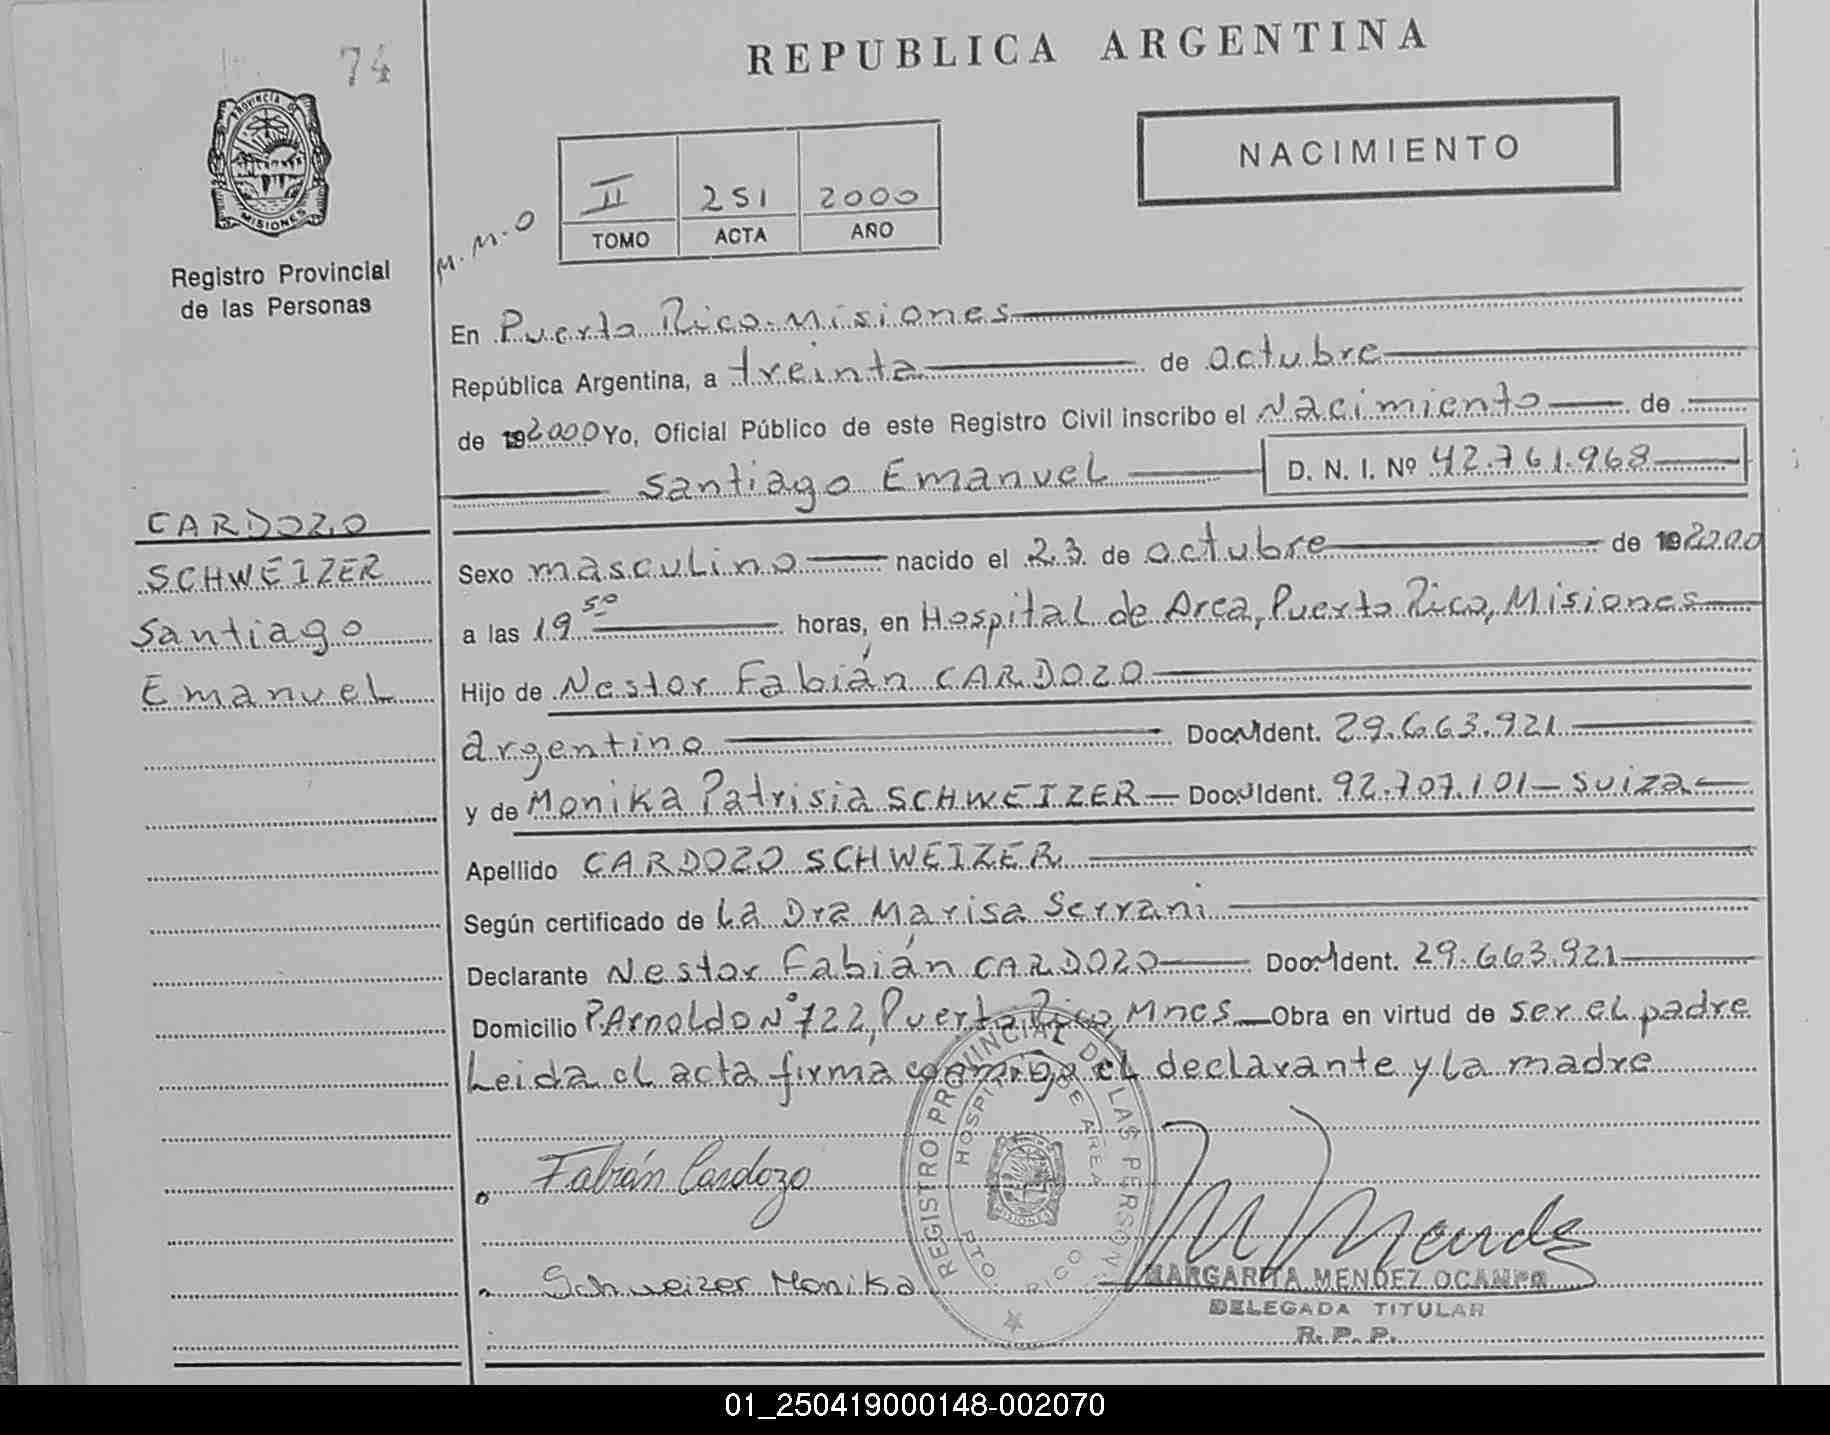 74
REPUBLICA ARGENTINA
PROVINCIA DE
MISIONES
Registro Provincial
de las Personas
NACIMIENTO
II 251 2000
TOMO ACTA AÑO
M. M. O
En Puerto Rico - Misiones
República Argentina, a treinta de octubre
de 192000 Yo, Oficial Público de este Registro Civil inscribo el Nacimiento de
Santiago Emanuel D. N. I. Nº 42.761.968
CARDOZO
SCHWEIZER
Santiago
Emanuel
Sexo masculino nacido el 23 de octubre de 192000
a las 19 50 horas, en Hospital de Area, Puerto Rico, Misiones
Hijo de Nestor Fabián CARDOZO
argentino Doc. Ident. 29.663.921
y de Monika Patrisia SCHWEIZER Doc. Ident. 92.707.101 - suiza
Apellido CARDOZO SCHWEIZER
Según certificado de La Dra Marisa Serrani
Declarante Nestor Fabián CARDOZO Doc. Ident. 29.663.921
Domicilio P. Arnoldo N° 722, Puerto Rico, Mnes Obra en virtud de ser el padre
Leida el acta firma conmigo el declarante y la madre
REGISTRO PROVINCIAL DE LAS PERSONAS
HOSPITAL DE AREA
PTO. RICO
MISIONES
Fabián Cardozo
Schweizer Monika
M Mendez
MARGARITA MENDEZ OCAMPO
DELEGADA TITULAR
R. P. P.
01_250419000148-002070